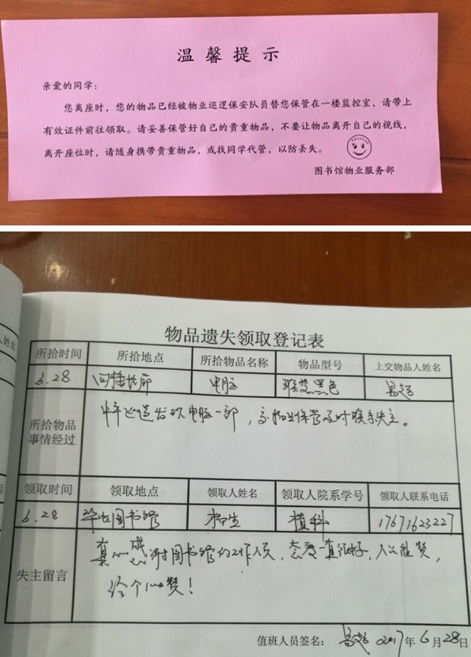 温馨提示
亲爱的同学：
您离座时，您的物品已经被物业巡逻保安队员替您保管在一楼监控室，请带上
有效证件前往领取。请妥善保管好自己的贵重物品，不要让物品离开自己的视线，
离开座位时，请随身携带贵重物品，或找同学代管，以防丢失。
图书馆物业服务部
物品遗失领取登记表
所拾时间 所拾地点 所拾物品名称 物品型号 上交物品人姓名
6.28 电脑 联想黑色
所拾物品
事情经过
中午巡逻发现电脑一部，交物业保管及时联系失主。
领取时间 领取地点 领取人姓名 领取人院系学号 领取人联系电话
6.28 华农图书馆 植科 17671623227
失主留言
真心感谢图书馆的工作人员，态度一直很好，
给个心赞！
值班人员签名： 2017年6月28日